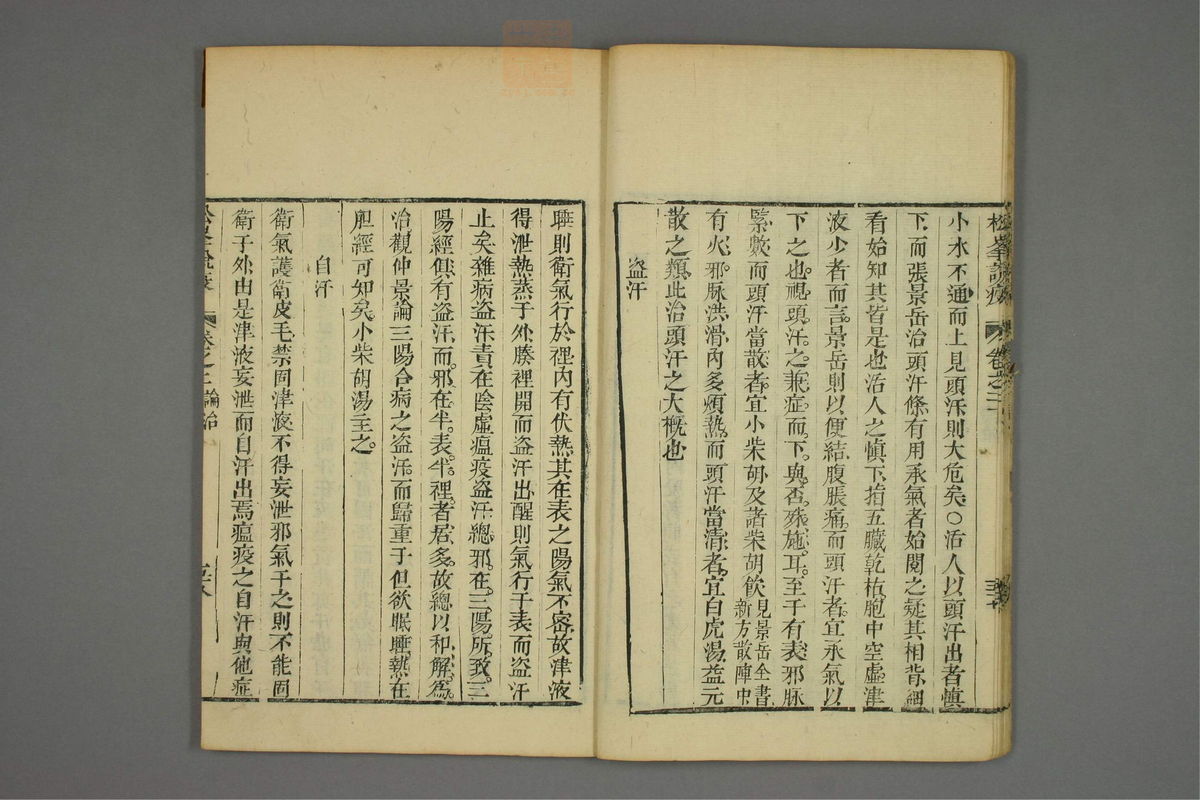 松峯說疫 卷之二
小水不通而上見頭汗則大危矣○活人以頭汗出者慎
下而張景岳治頭汗條有用承氣者始閱之疑其相背細
看始知其皆是也活人之慎下指五臟乾枯胞中空虛津
液少者而言景岳則以便結腹脹痛而頭汗者宜承氣以
下之也視頭汗之兼症而下與否殊施耳至于有表邪脉
緊數而頭汗當散者宜小柴胡及諸柴胡飲見景岳全書新方散陣中
有火邪脉洪滑內多煩熱而頭汗當清者宜白虎湯益元
散之類此治頭汗之大概也
盜汗
睡則衛氣行於裡內有伏熱其在表之陽氣不密故津液
得泄熱蒸于外腠裡開而盜汗出醒則氣行于表而盜汗
止矣雜病盜汗責在陰虛瘟疫盜汗總邪在三陽所致三
陽經俱有盜汗而邪在半表半裡者居多故總以和解爲
治觀仲景論三陽合病之盜汗而歸重于但欲眠睡熱在
胆經可知矣小柴胡湯主之
自汗
衛氣護衛皮毛禁固津液不得妄泄邪氣干之則不能固
衛于外由是津液妄泄而自汗出焉瘟疫之自汗與他症
卷之二 論治